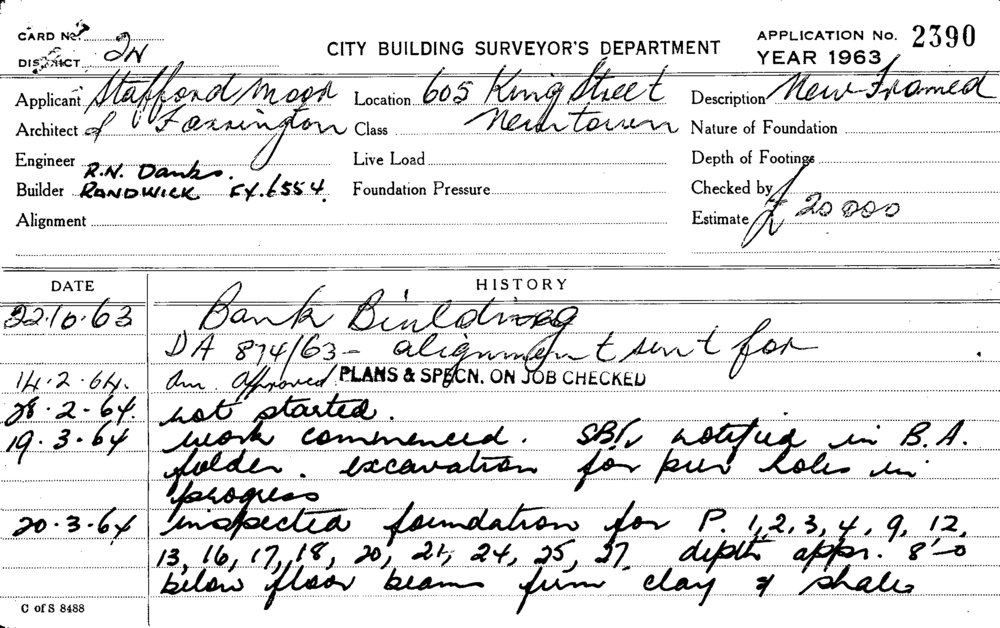 CARD No.
DISTRICT 2N
CITY BUILDING SURVEYOR'S DEPARTMENT
APPLICATION No. 2390
YEAR 1963
Applicant Stafford Moor Location 605 King Street Description New Framed
Architect & Farrington Class Newtown Nature of Foundation
Engineer Live Load Depth of Footings
R.N. Danks.
Builder RANDWICK FX.6554. Foundation Pressure Checked by
Alignment Estimate £ 20 000
DATE HISTORY
22.10.63 Bank Building
DA 874/63 - alignment sent for
14.2.64. Am. Approved PLANS & SPECN. ON JOB CHECKED
28.2.64. not started.
19.3.64 work commenced. notified in B.A.
folder. excavation for pier holes in
progress
20.3.64 inspected foundation for P. 1,2,3,4,9,12,
13,16,17,18,20,21,24,25,27 depth appr. 8'-0
below floor beams firm clay & shale
C of S 8488